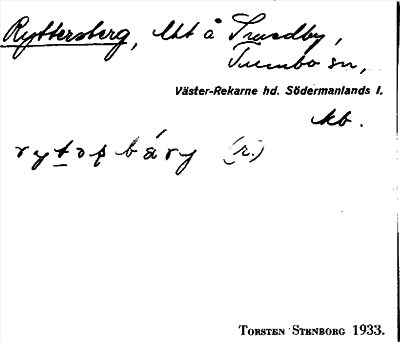 Ryttersberg, lht å Sundby,
Tumbo sn,
Väster-Rekarne hd. Södermanlands l.
kb.
rytəṣbáry (r.)
TORSTEN STENBORG 1933.